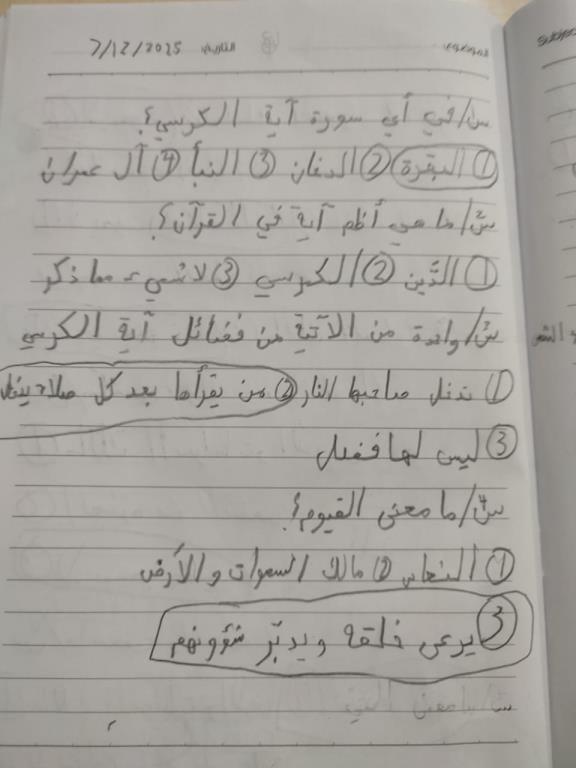 الموضوع التاريخ 7/12/2025
س/في أي سورة آية الكرسي؟
① البقرة ② الدخان ③ النبأ ④ آل عمران
س٢/ما هي أظم آية في القرآن؟
① الدَّين ② الكرسي ③ لا شيء مما ذكر
س٣/واحدة من الآتية من فضائل آية الكرسي
① تدخل صاحبها النار ② من يقرأها بعد كل صلاة
③ ليس لها فضل
س٤/ما معنى القيوم؟
① النعاس ② مالك السموات والأرض
③ يرعى خلقه ويدبّر شؤونهم
س/ما معنى